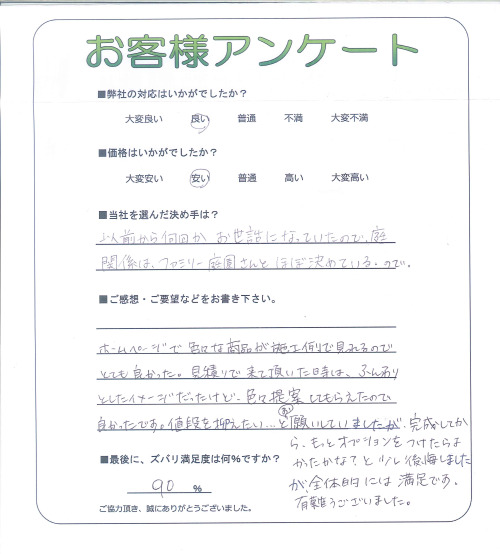 お客様アンケート
■弊社の対応はいかがでしたか？
大変良い 良い 普通 不満 大変不満
■価格はいかがでしたか？
大変安い 安い 普通 高い 大変高い
■当社を選んだ決め手は？
以前から何回か お世話になっていたので、庭
関係は、ファミリー庭園さんと ほぼ決めている。ので。
■ご感想・ご要望などをお書き下さい。
ホームページで色々な商品が施工例で見れるので
とても良かった。見積りで来て頂いた時は、ふんわり
としたイメージだったけど、色々提案してもらえたので
良かったです。値段を抑えたい…とお願いしていましたが、完成してか
ら、もっとオプションをつけたらよ
かったかな？と少し後悔しました
が、全体的には満足です。
有難うございました。
■最後に、ズバリ満足度は何%ですか？
90 %
ご協力頂き、誠にありがとうございました。